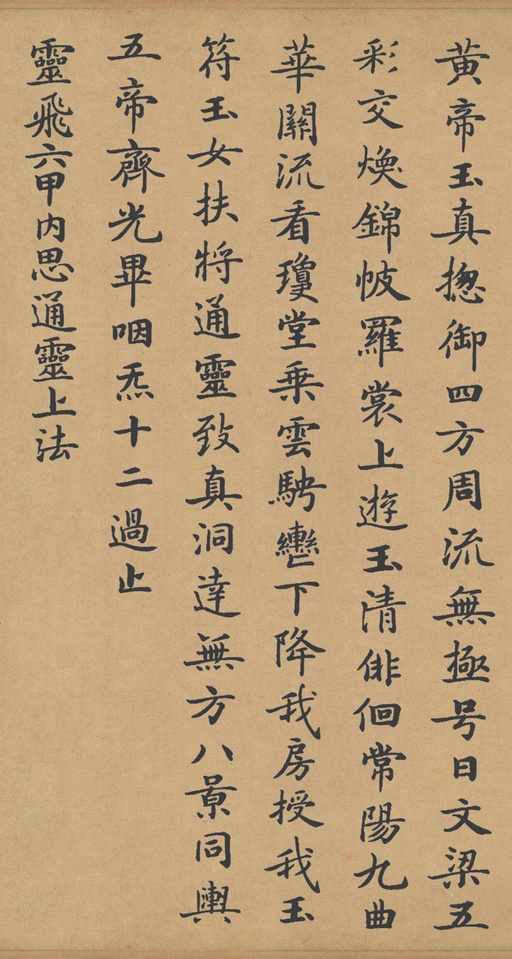 黃帝玉真揔御四方周流無極号曰文梁五
彩交煥錦帔羅裳上遊玉清俳佪常陽九曲
華關流看瓊堂乘雲駃轡下降我房授我玉
符玉女扶將通靈致真洞達無方八景同輿
五帝齊光畢咽炁十二過止
靈飛六甲內思通靈上法